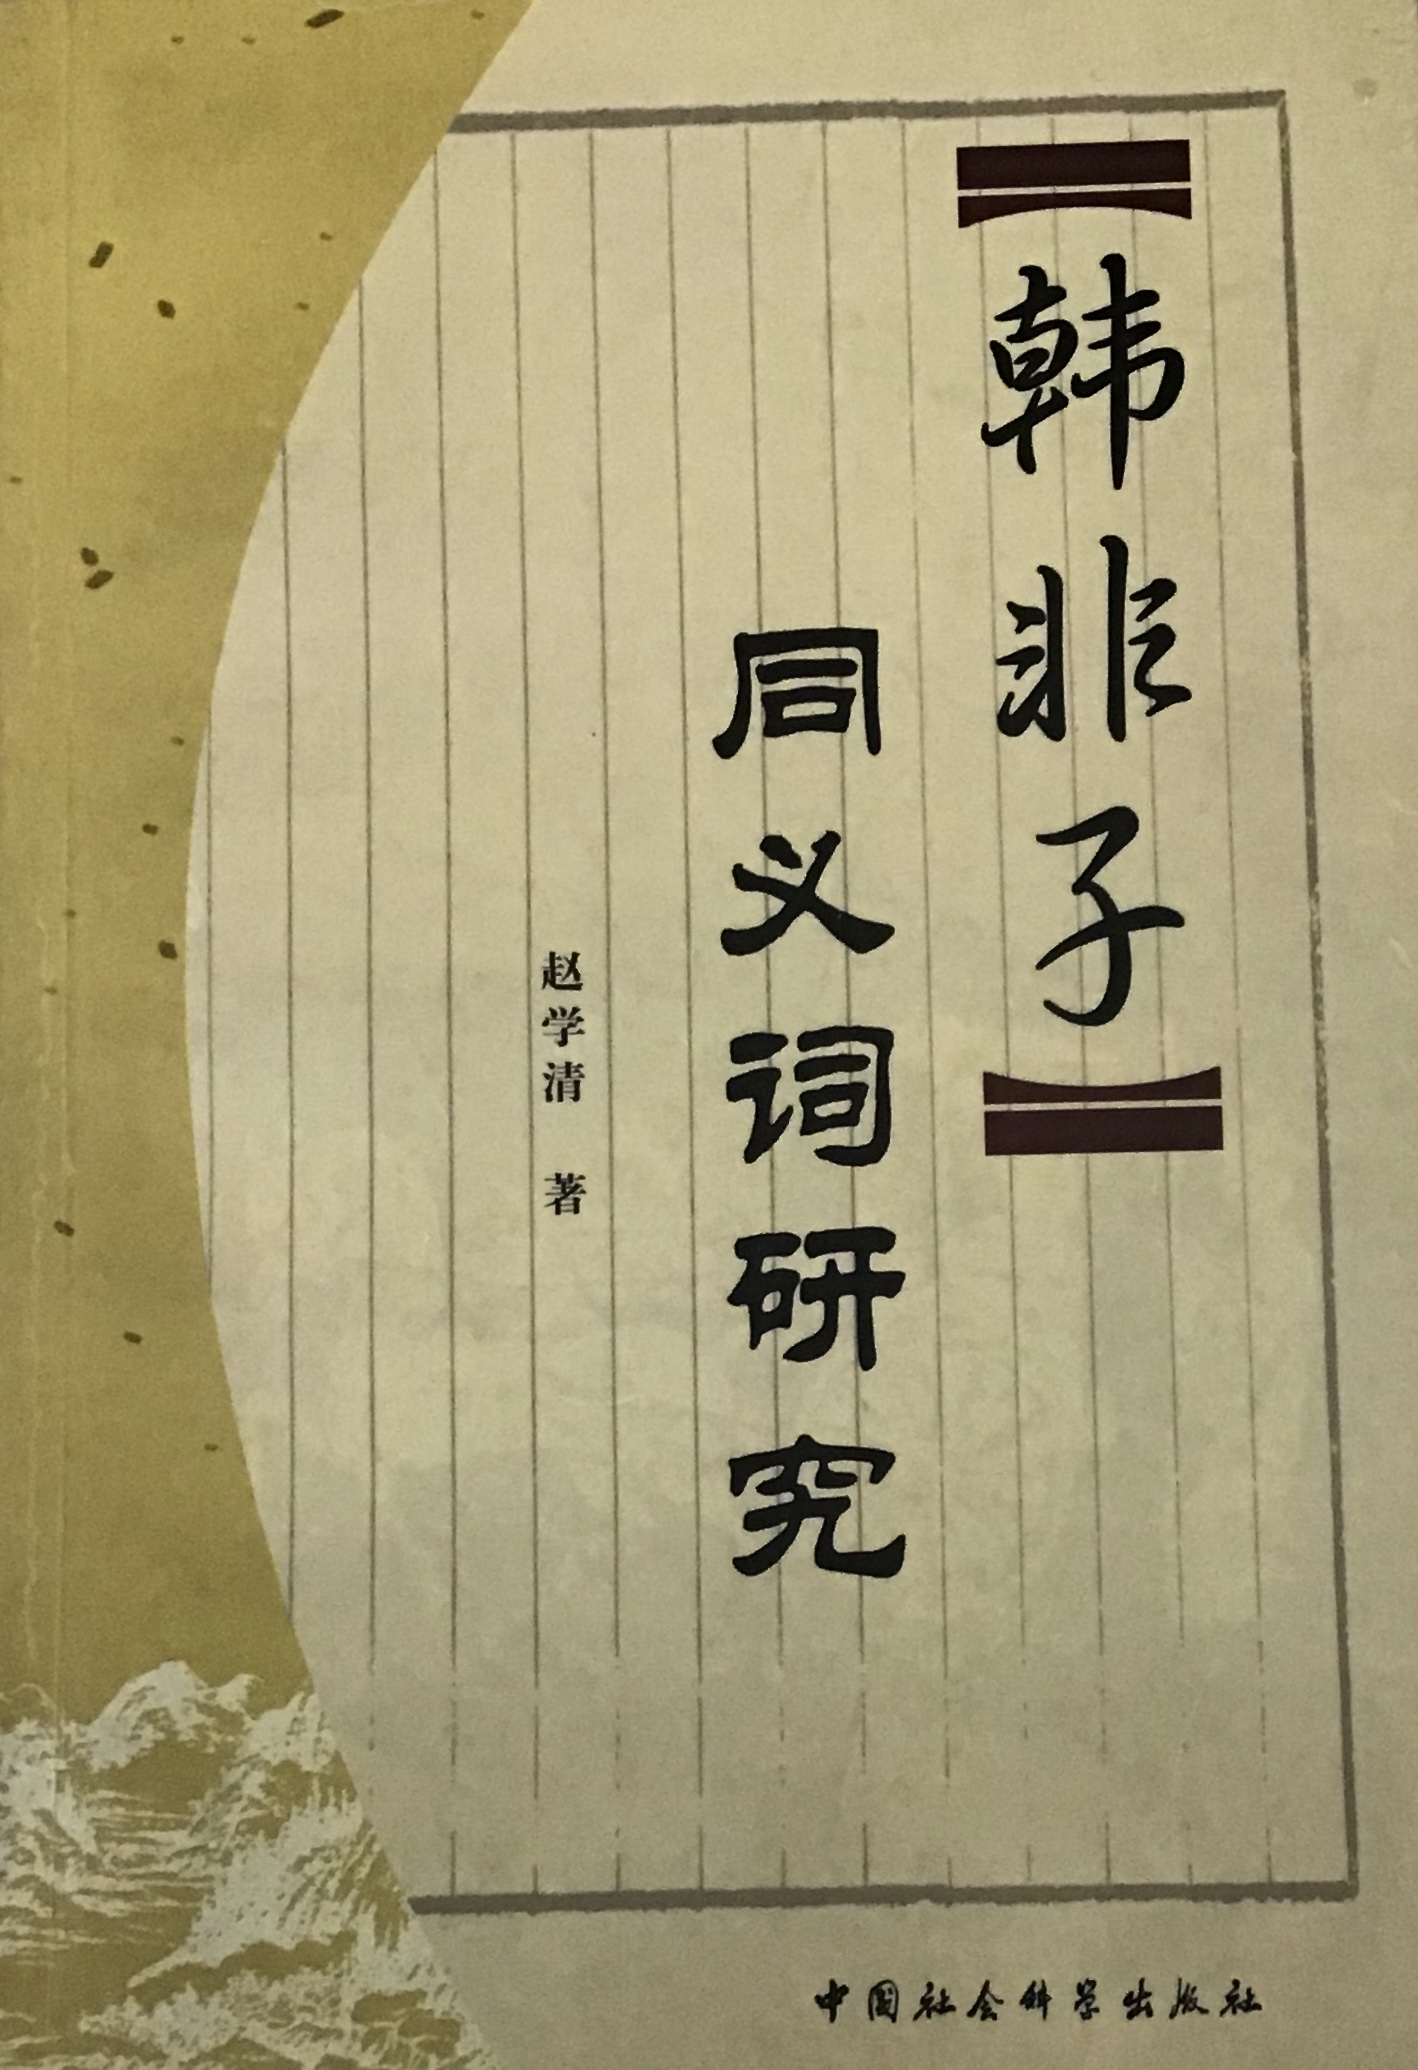 【韩非子】
同义词研究
赵学清 著
中国社会科学出版社